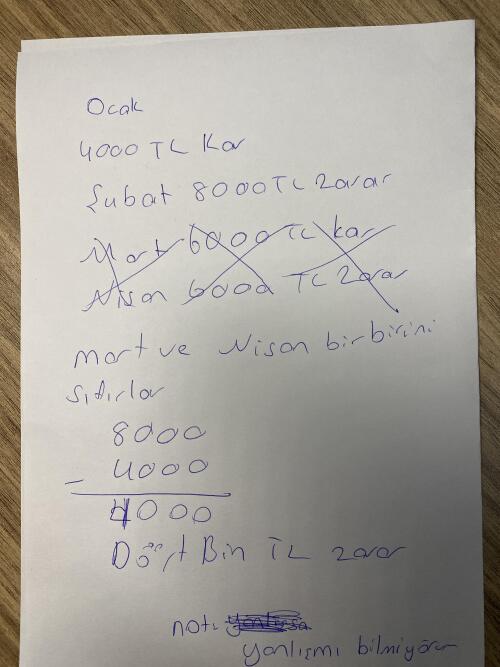 Ocak
4000 TL Kar
Şubat 8000 TL Zarar
Mart 6000 TL kar
Nisan 6000 TL Zarar
Mart ve Nisan birbirini
sıfırlar
8000
- 4000
4000
Dört Bin TL zarar
not:
yanlışmı bilmiyorum